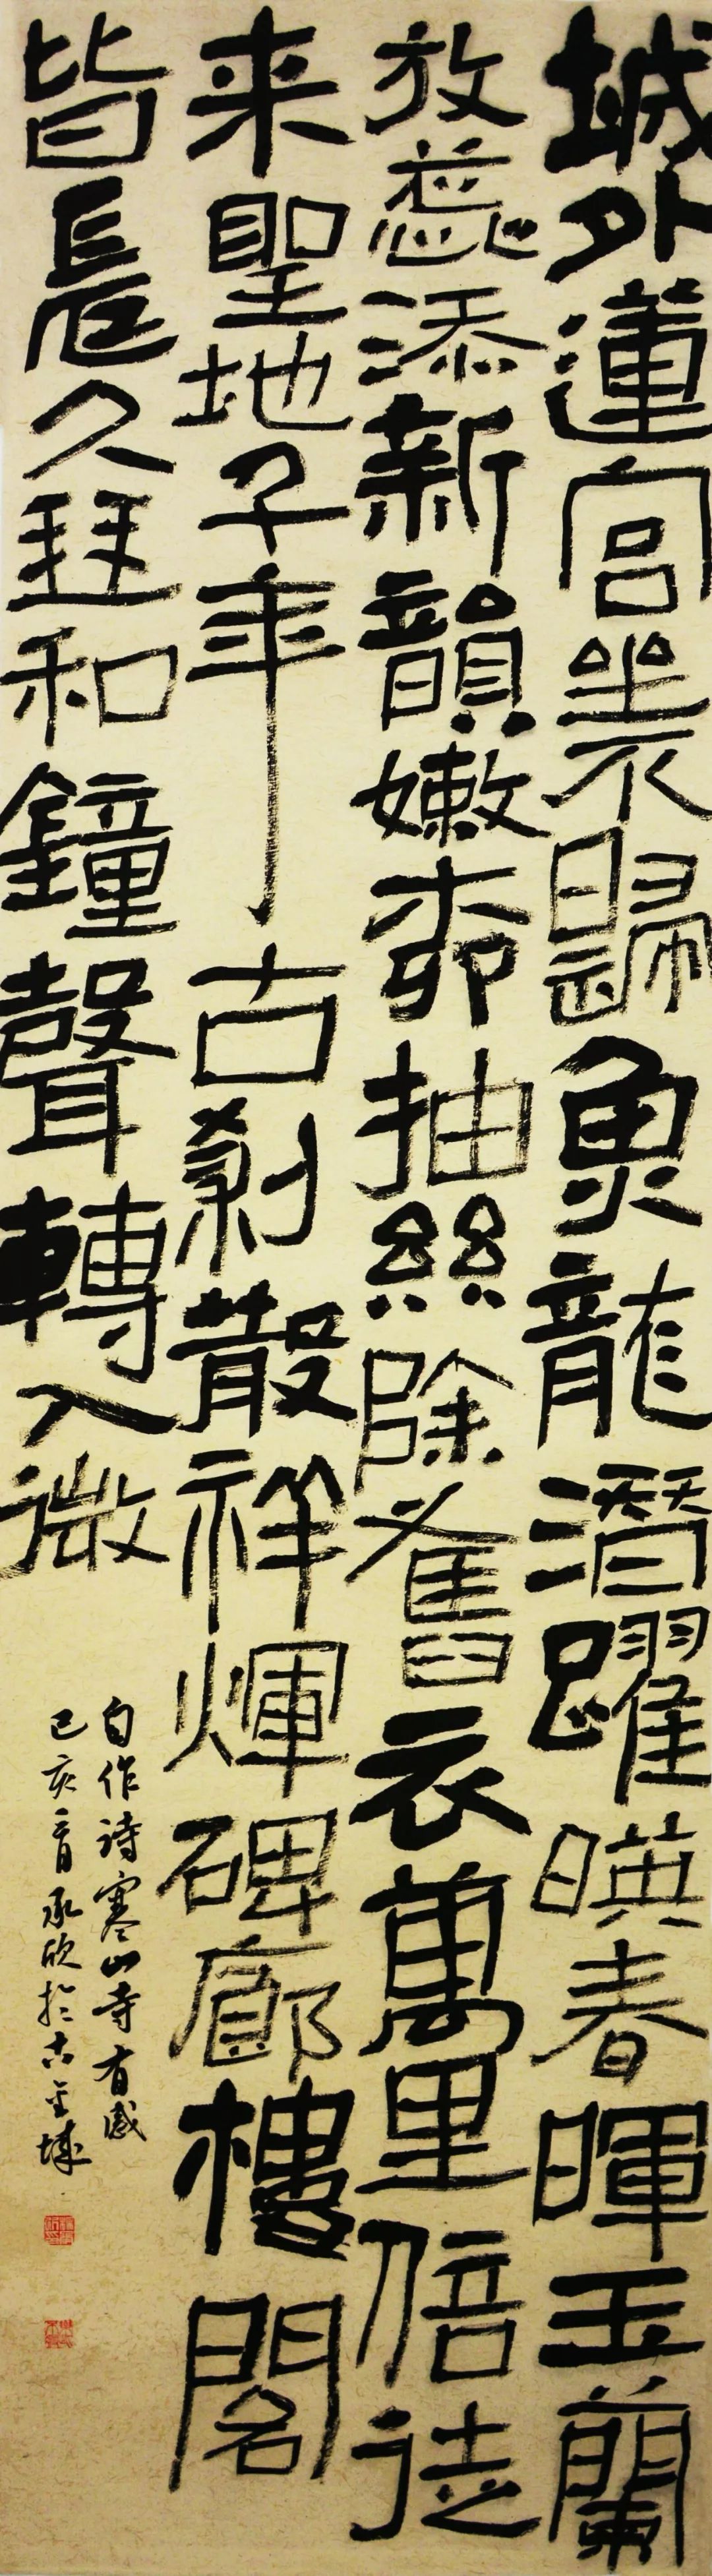 城外蓮宮坐不歸魚龍潛躍暎春暉玉蘭
放蕊添新韻嫩柳抽絲除舊衣萬里信徒
來聖地千年古剎散祥煇碑廊樓閣
皆長久琴和鐘聲轉入微
自作詩寒山寺有感
己亥二月承欣於古金陵